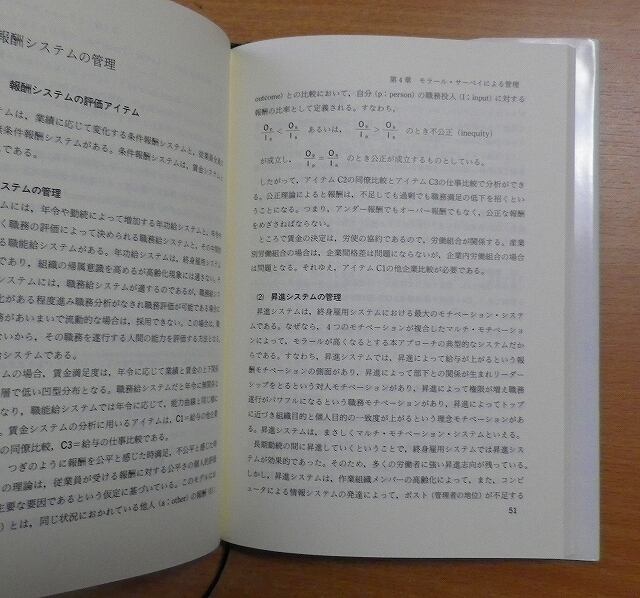 報酬システムの管理
報酬システムの評価アイテム
テムは、業績に応じて変化する条件報酬システムと、従業員を
無条件報酬システムがある。条件報酬システムは、賃金システムに
である。
システムの管理
テムには、年令や勤続によって増加する年功給システムと、年令や
く職務の評価によって決められる職務給システムと、その中間
る職能給システムがある。年功給システムは、終身雇用システム
であり、組織の帰属意識を高めるが高齢化現象には適さない。そ
システムには、職務給システムが適するのであるが、職務給シス
化がある程度進み職務分析がなされ職務評価が可能である場合に
務があいまいで流動的な場合は、採用できない。この場合は、職
ないから、その職務を遂行する人間の能力を評価する方法となる
ムの場合、賃金満足度は、年令に応じて業績と賃金の上下関係
層で低い凹型分布となる。職務給システムだと年令に無関係な
なり、職能給システムでは年令に応じて、能力曲線と同じ様に
。賃金システムの分析に用いるアイテムは、C1=給与の他企業
の同僚比較、C3=給与の仕事比較である。
つぎのように報酬を公平と感じた時満足、不公平と感じた時
の理論は、従業員が受ける報酬に対する公平さの個人的評価
主要な要因であるという仮定に基づいている。このモデルに
)とは、同じ状況におかれている他人(a:other)の報酬(O:
第4章 モラール・サーベイによる管理
outcome)との比較において、自分(p:person)の職務投入(I:input)に対する
報酬の比率として定義される。すなわち、
Op/Ip < Oa/Ia あるいは、 Op/Ip > Oa/Ia のとき不公正(inequity)
が成立し、 Op/Ip = Oa/Ia のとき公正が成立するものとしている。
したがって、アイテムC2の同僚比較とアイテムC3の仕事比較で分析ができ
る。公正理論によると報酬は、不足しても過剰でも職務満足の低下を招くとい
うことになる。つまり、アンダー報酬でもオーバー報酬でもなく、公正な報酬
をめざさねばならない。
ところで賃金の決定は、労使の協約であるので、労働組合が関係する。産業
別労働組合の場合は、企業間格差は問題にならないが、企業内労働組合の場合
は問題となる。それゆえ、アイテムC1の他企業比較が必要である。
(2) 昇進システムの管理
昇進システムは、終身雇用システムにおける最大のモチベーション・システ
ムである。なぜなら、4つのモチベーションが複合したマルチ・モチベーショ
ンによって、モラールが高くなるとする本アプローチの典型的なシステムだか
らである。すなわち、昇進システムでは、昇進によって給与が上がるという報
酬モチベーションの側面があり、昇進によって部下との関係が生まれリーダー
シップをとるという対人モチベーションがあり、昇進によって権限が増え職務
遂行がパワフルになるという職務モチベーションがあり、昇進によってトップ
に近づき組織目的と個人目的の一致度が上がるという理念モチベーションがあ
る。昇進システムは、まさしくマルチ・モチベーション・システムといえる。
長期勤続の間に昇進していくということで、終身雇用システムでは昇進シス
テムが効果的であった。そのため、多くの労働者に強い昇進志向が残っている。
しかし、昇進システムは、作業組織メンバーの高齢化によって、また、コンピ
ュータによる情報システムの発達によって、ポスト(管理者の地位)が不足する
51